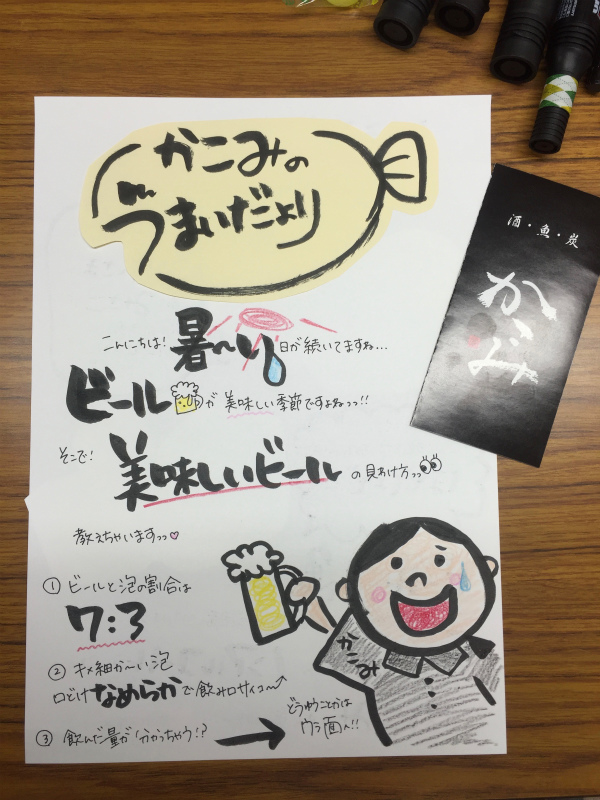 かこみの
うまいだより
こんにちは!暑〜い日が続いてますね...
ビールが美味しい季節ですよねっっ!!
そこで!美味しいビールの見わけ方っっ
教えちゃいますっっ♡
① ビールと泡の割合は
7:3
② キメ細か〜い泡
口どけなめらかで飲み口サイコ〜↑
③ 飲んだ量が分かっちゃう!?→
どうゆうことかは
ウラ面へ!!
かこみ
酒・魚・炭
かこみ